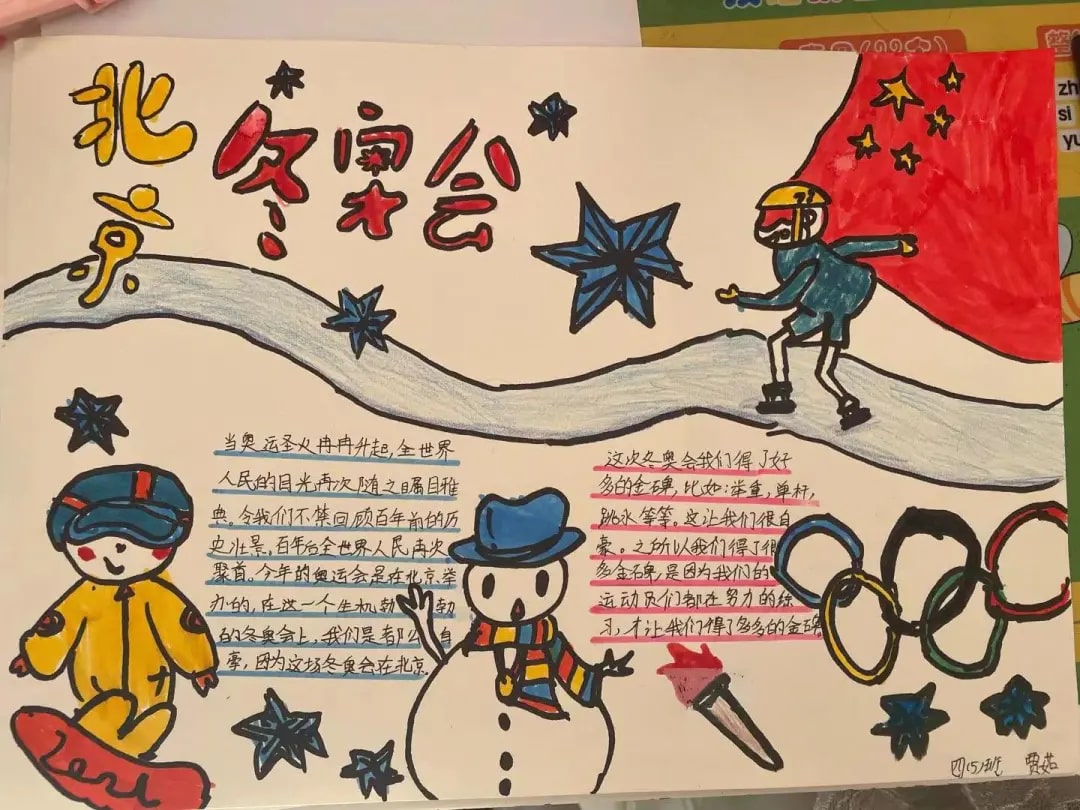 北京
冬奥会
当奥运圣火冉冉升起,全世界
人民的目光再次随之瞩目雅
典。令我们不禁回顾百年前的历
史壮景,百年后全世界人民再次
聚首。今年的奥运会是在北京举
办的,在这一个生机勃勃
的冬奥会上,我们是都么自
豪,因为这场冬奥会在北京。
这次冬奥会我们得了好
多的金牌,比如:举重,单杆,
跳水等等。这让我们很自
豪。之所以我们得了很
多金牌,是因为我们的
运动员们都在努力的练
习,才让我们得了多多的金牌
四(5)班 贾茹
zh
si
yu